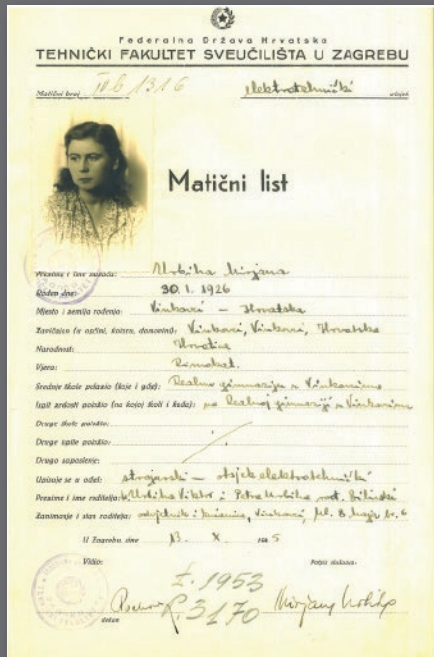 Federalna Država Hrvatska
TEHNIČKI FAKULTET SVEUČILIŠTA U ZAGREBU
Matični broj IV b / 1316 elektrotehnički odsjek
Matični list
Prezime i ime slušača: Urbiha Mirjana
Rođen dne: 30. 1. 1926
Mjesto i zemlja rođenja: Vinkovci – Hrvatska
Zavičajan (u općini, kotaru, banovini): Vinkovci, Vinkovci, Hrvatska
Narodnost: Hrvatica
Vjera: Rimokat.
Srednje škole polazio (koje i gdje): Realnu gimnaziju u Vinkovcima
Ispit zrelosti položio (na kojoj školi i kada): na Realnoj gimnaziji u Vinkovcima
Druge škole polazio:
Druge ispite položio:
Drugo zaposlenje:
Upisuje se u odjel: strojarski – otsjek elektrotehnički
Prezime i ime roditelja: Urbiha Viktor i Petra Urbiha rođ.
Zanimanje i stan roditelja: Vinkovci, br. 6
U Zagrebu, dne 13. X. 1945
Vidio: Potpis slušača:
Ž. 1953
R. 3170
dekan Mirjana Urbiha